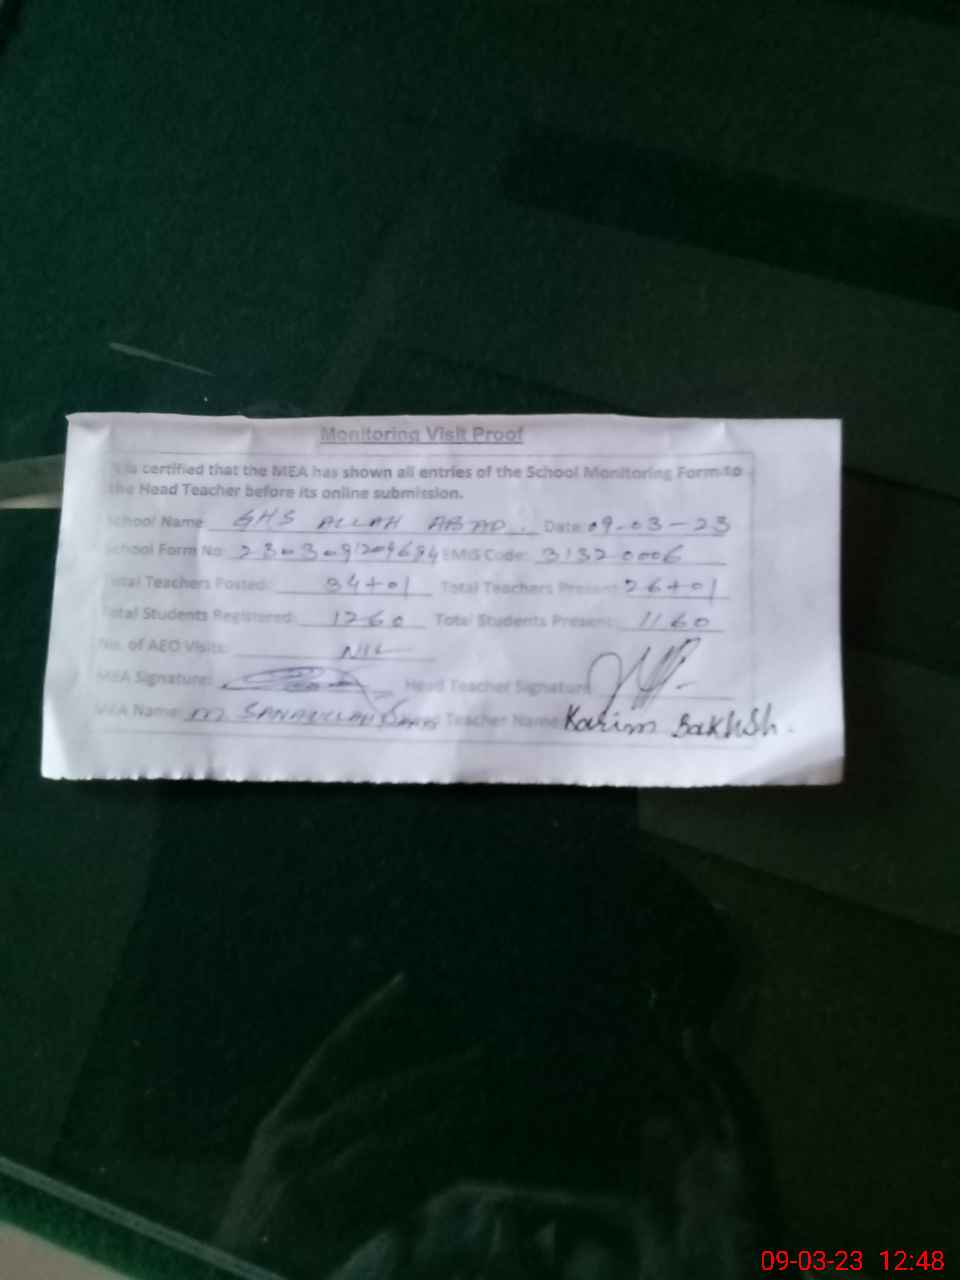 Monitoring Visit Proof
is certified that the MEA has shown all entries of the School Monitoring Form to
the Head Teacher before its online submission.
School Name GHS ALLAH ABAD. Date: 09-03-23
School Form No: EMIS Code: 31320006
Total Teachers Posted: 34+01 Total Teachers Present: 26+01
Total Students Registered: 1260 Total Students Present: 1160
No. of AEO Visits: NIL
MEA Signature: Head Teacher Signature
MEA Name: M SANAULLAH Teacher Name Karim Bakhsh.
09-03-23 12:48